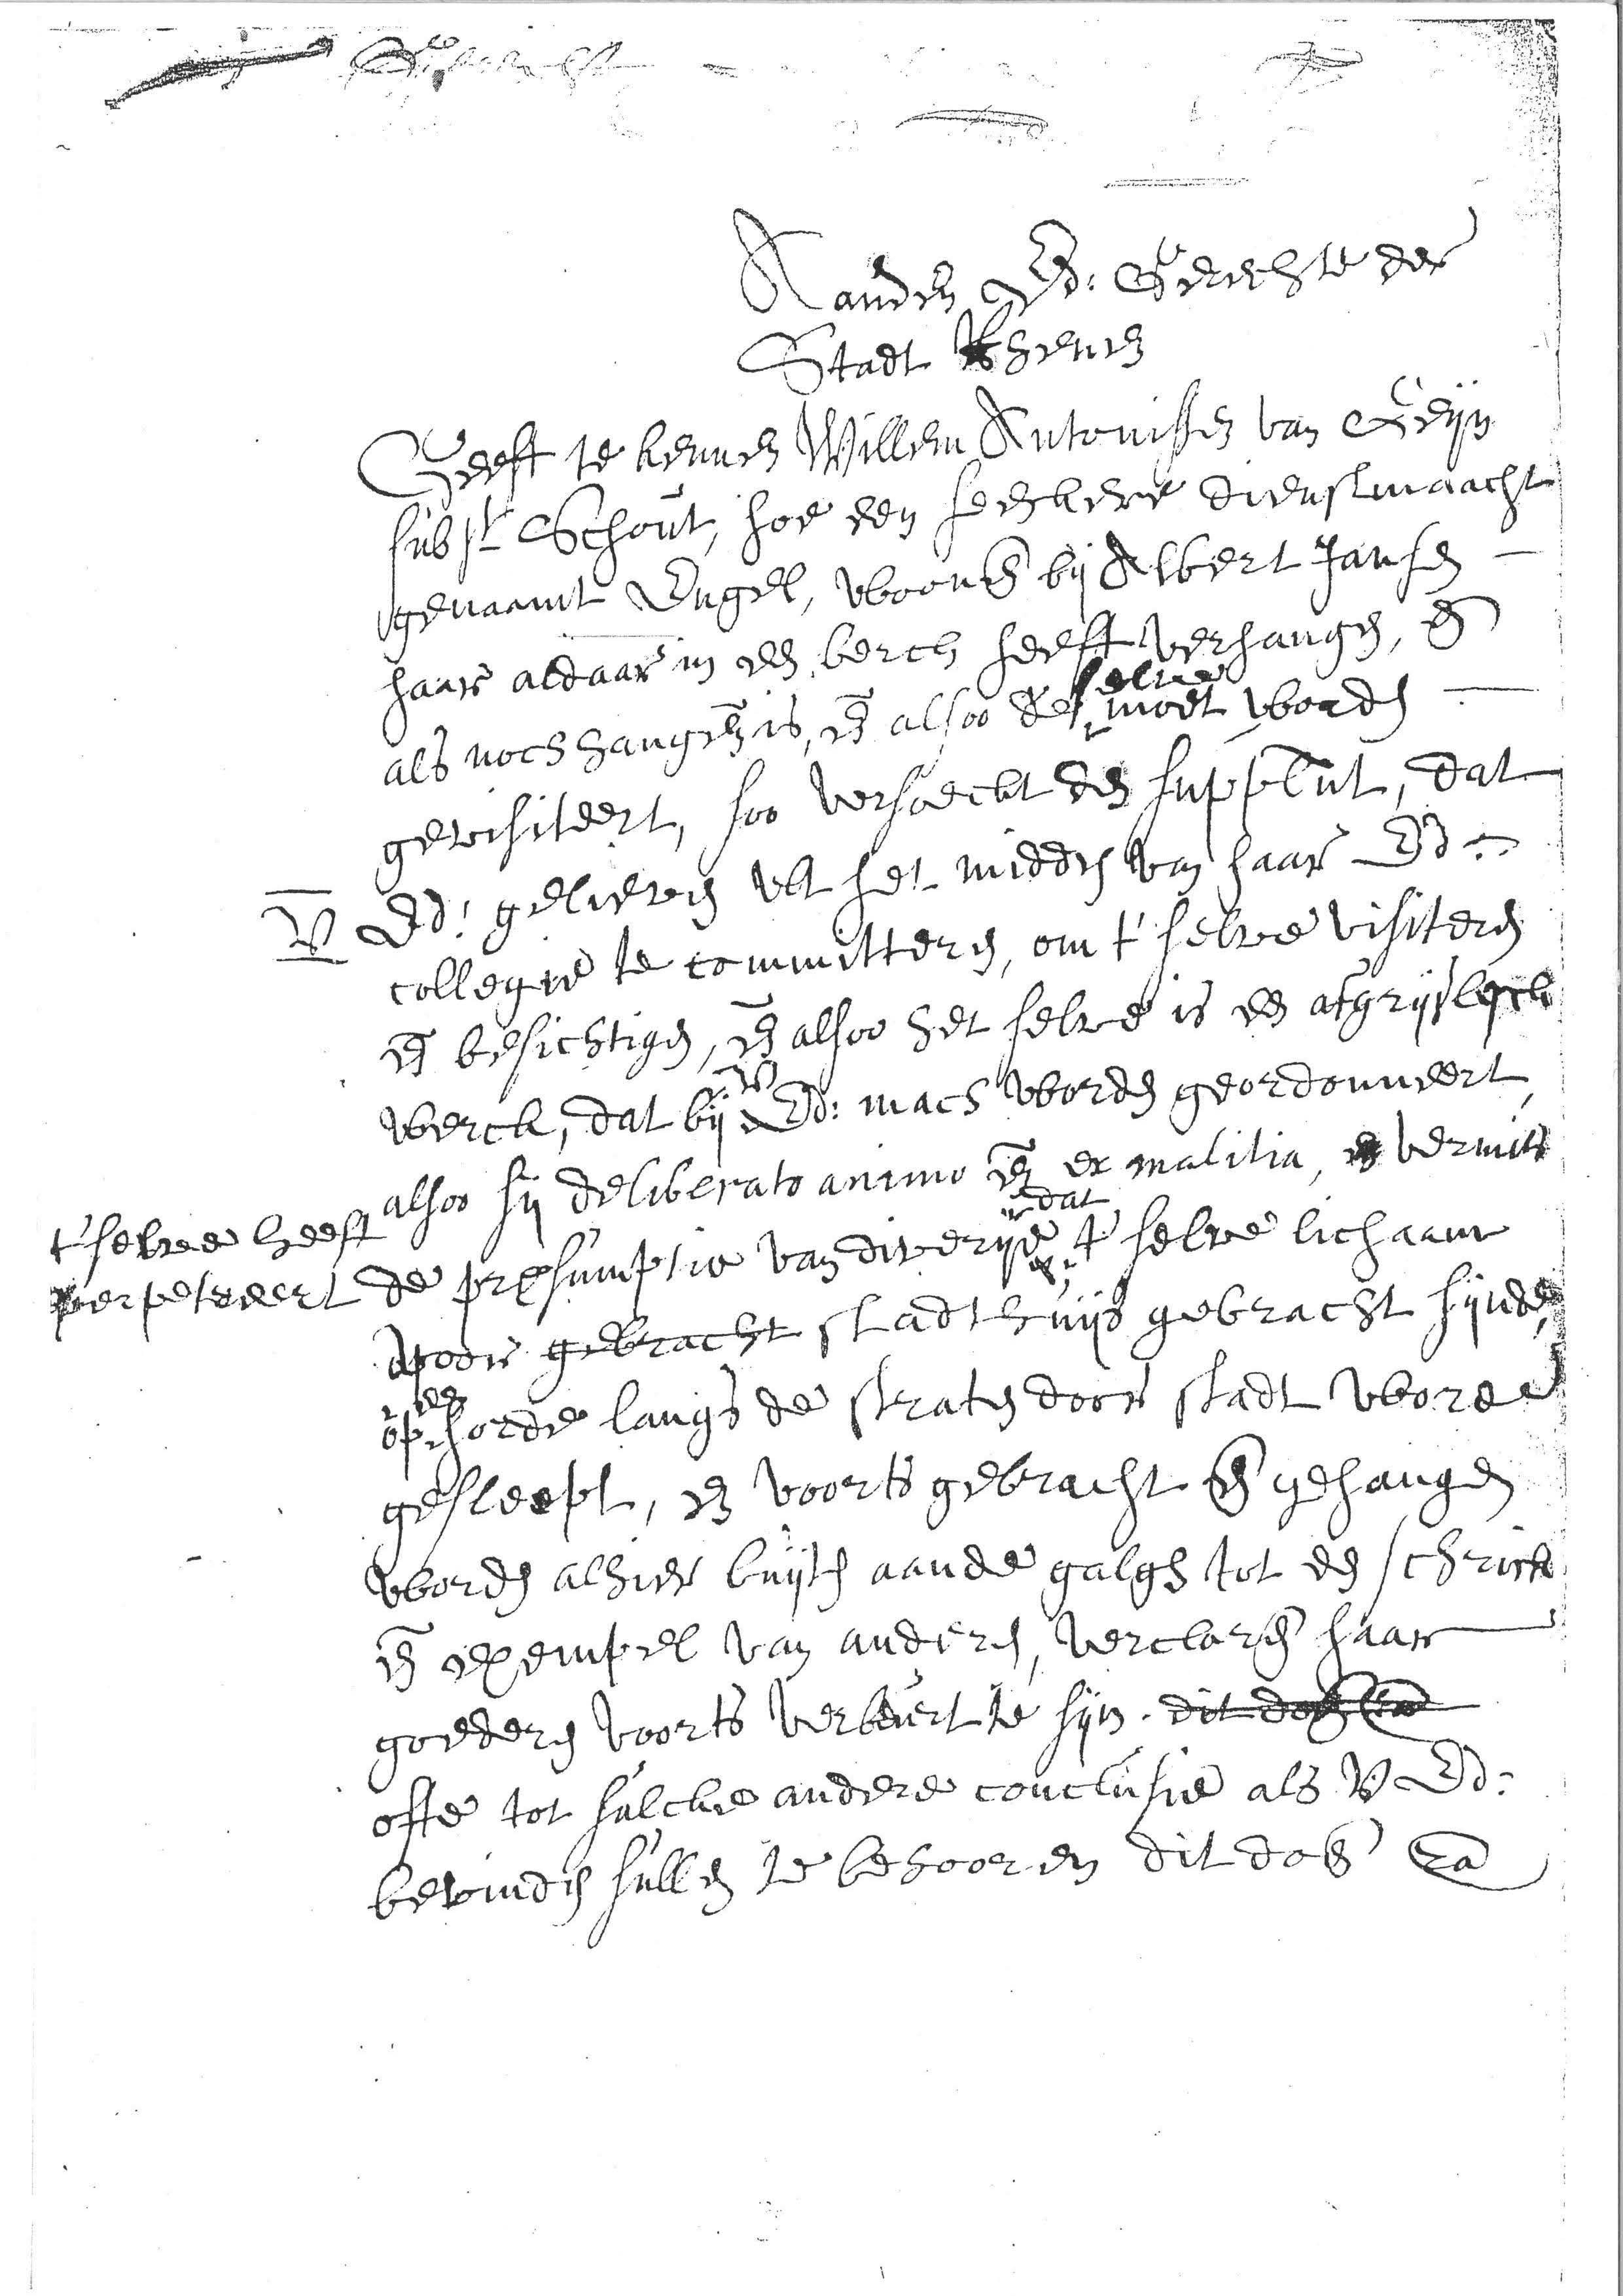 Aanden Ed: Gerechte der
Stadt Rhenen
Geeft te kennen Willem Antonissen van Geijn
subst Schout, hoe een seeckere dienstmaacht
genaamt Engel, woonen bij Albert Jansen
haar aldaar in een berch heeft verhangen, en
als noch hangen is, en alsoo deselve moet worden
gevisiteert, soo versoeckt den supplnt, dat
U Ed: gelieven uit het midden van haar Ed:
collegie te committeren, om t' selve visiteren
en besichtigen, en alsoo het selve is een afgrijslyck
werck, dat bij U Ed: mach worden geordonneert,
alsoo sij deliberato animo en ex malitia, vermits
t' selve heeft
perpetreert de presumptie van dieverije dat t' selve lichaam
voor gebracht stadthuijs gebracht sijnde,
op een horde langs de straten door stadt worde
gesleept, en voorts gebracht en gehangen
worden alhier buijten aande galgh tot een schrick
en exempel van anderen, verclaren haar
goederen voorts verbeurt te sijn. dit doen
offe tot sulcke andere conclusie als U Ed:
bevinden sullen te behooren dit doen